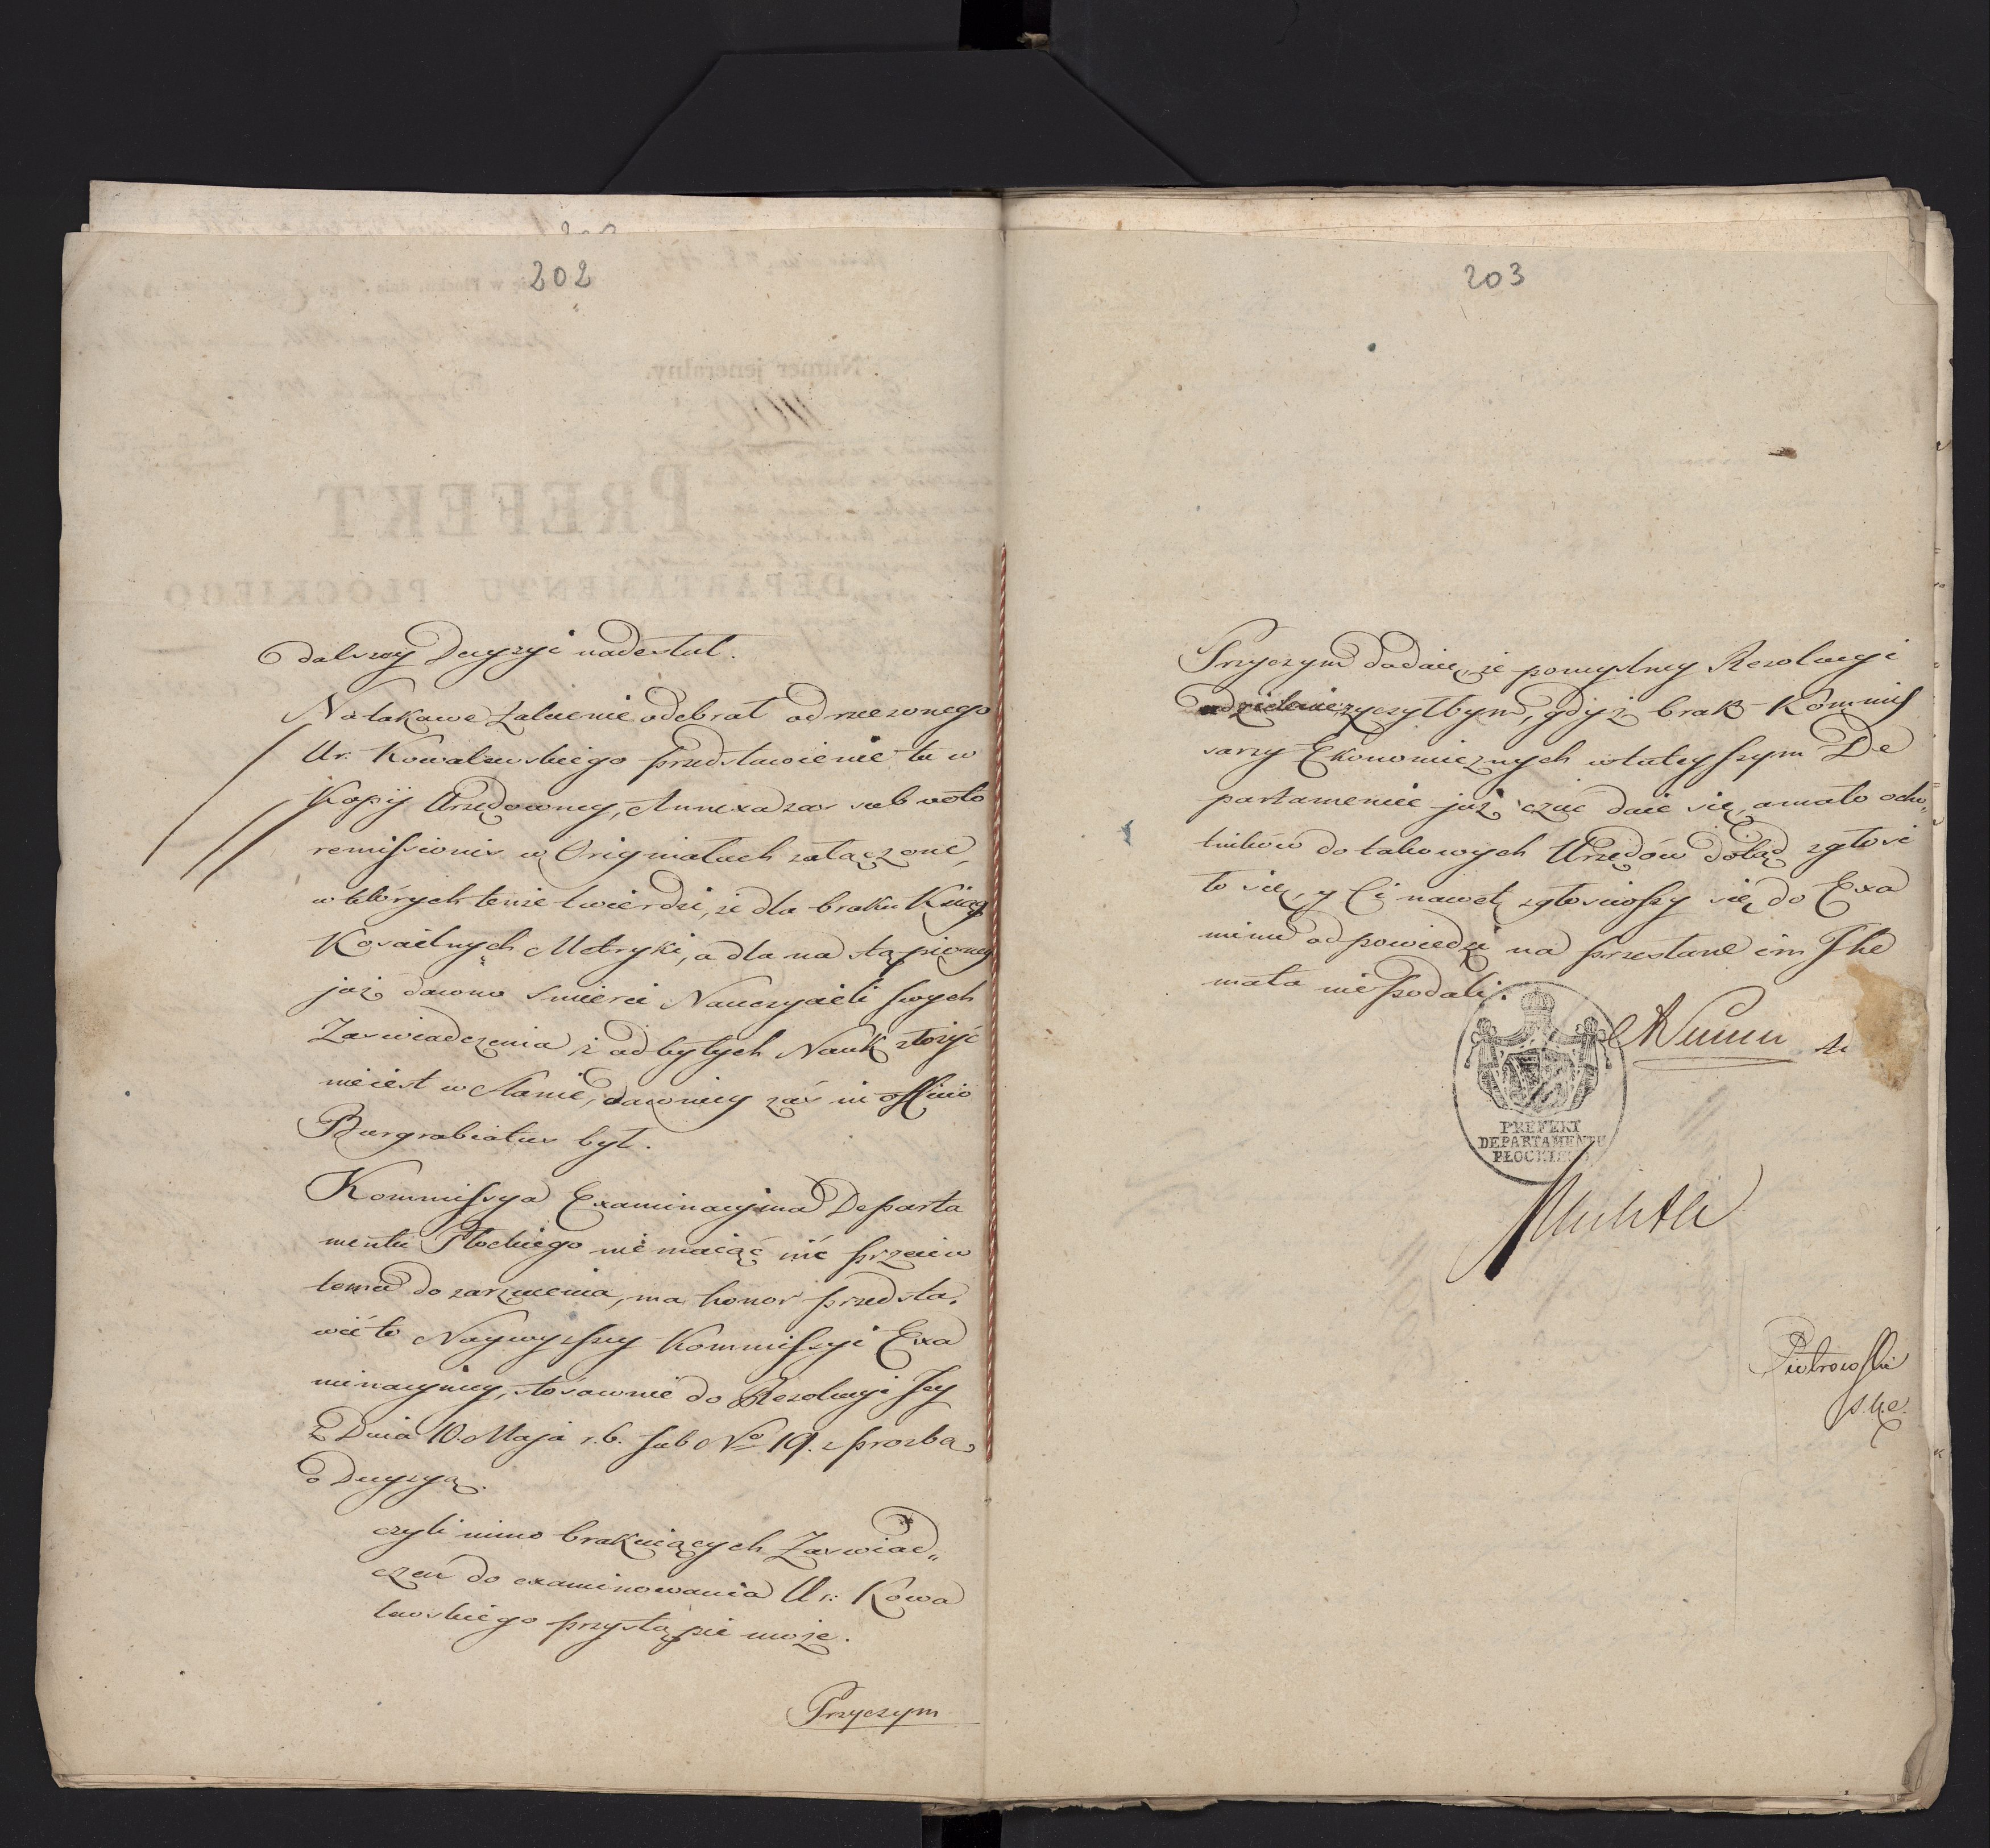 202
dalszey Decyzyi nadesłał.
Na takowe zalecenie odebrał od rzeczonego
Ur. Kowalewskiego przedstawienie tu w
Kopij Urzędowney, Annexa zas sub voto
remissionis w Originałach załączone,
w których tenże twierdzi, że dla braku Xiąg
Kościelnych Metryki, a dla nastąpioney
już dawno smierci Nauczycieli swych
Zaswiadczenia z odbytych Nauk złożyć
nie iest w Stanie, dawniey zaś in officio
Burgrabiatus był.
Kommissya Examinacyina Departa
mentu Płockiego nie maiąc nic przeciw
temu do zarzucenia, ma honor przedsta„
wić to Naywyższey Kommissyi Exa
minacyiney, stosownie do Rezolucyi Jey
z Dnia 10. Maja r. b. sub No 19. z prozbą
o Decyzyą.
czyli mimo brakuiących Zaswiad„
czeń do examinowania Ur: Kowa
lewskiego przystąpić może.
Przyczym
203
Przyczym dodaię, że pomyslney Rezolucyi
udzielenie życzyłbym, gdyż brak Kommis
sarzy Ekonomicznych w tuteyszym De
partamencie już czuć daie się, a mało ocho„
tników do takowych Urzędów dotąd zgłosi
ło się, y Ci nawet zgłosiwszy się do Exa
minu odpowiedzi na przesłane im The
mata nie podali.
PREFEKT
DEPARTAMENTU
PŁOCKIEGO
Piotrowski